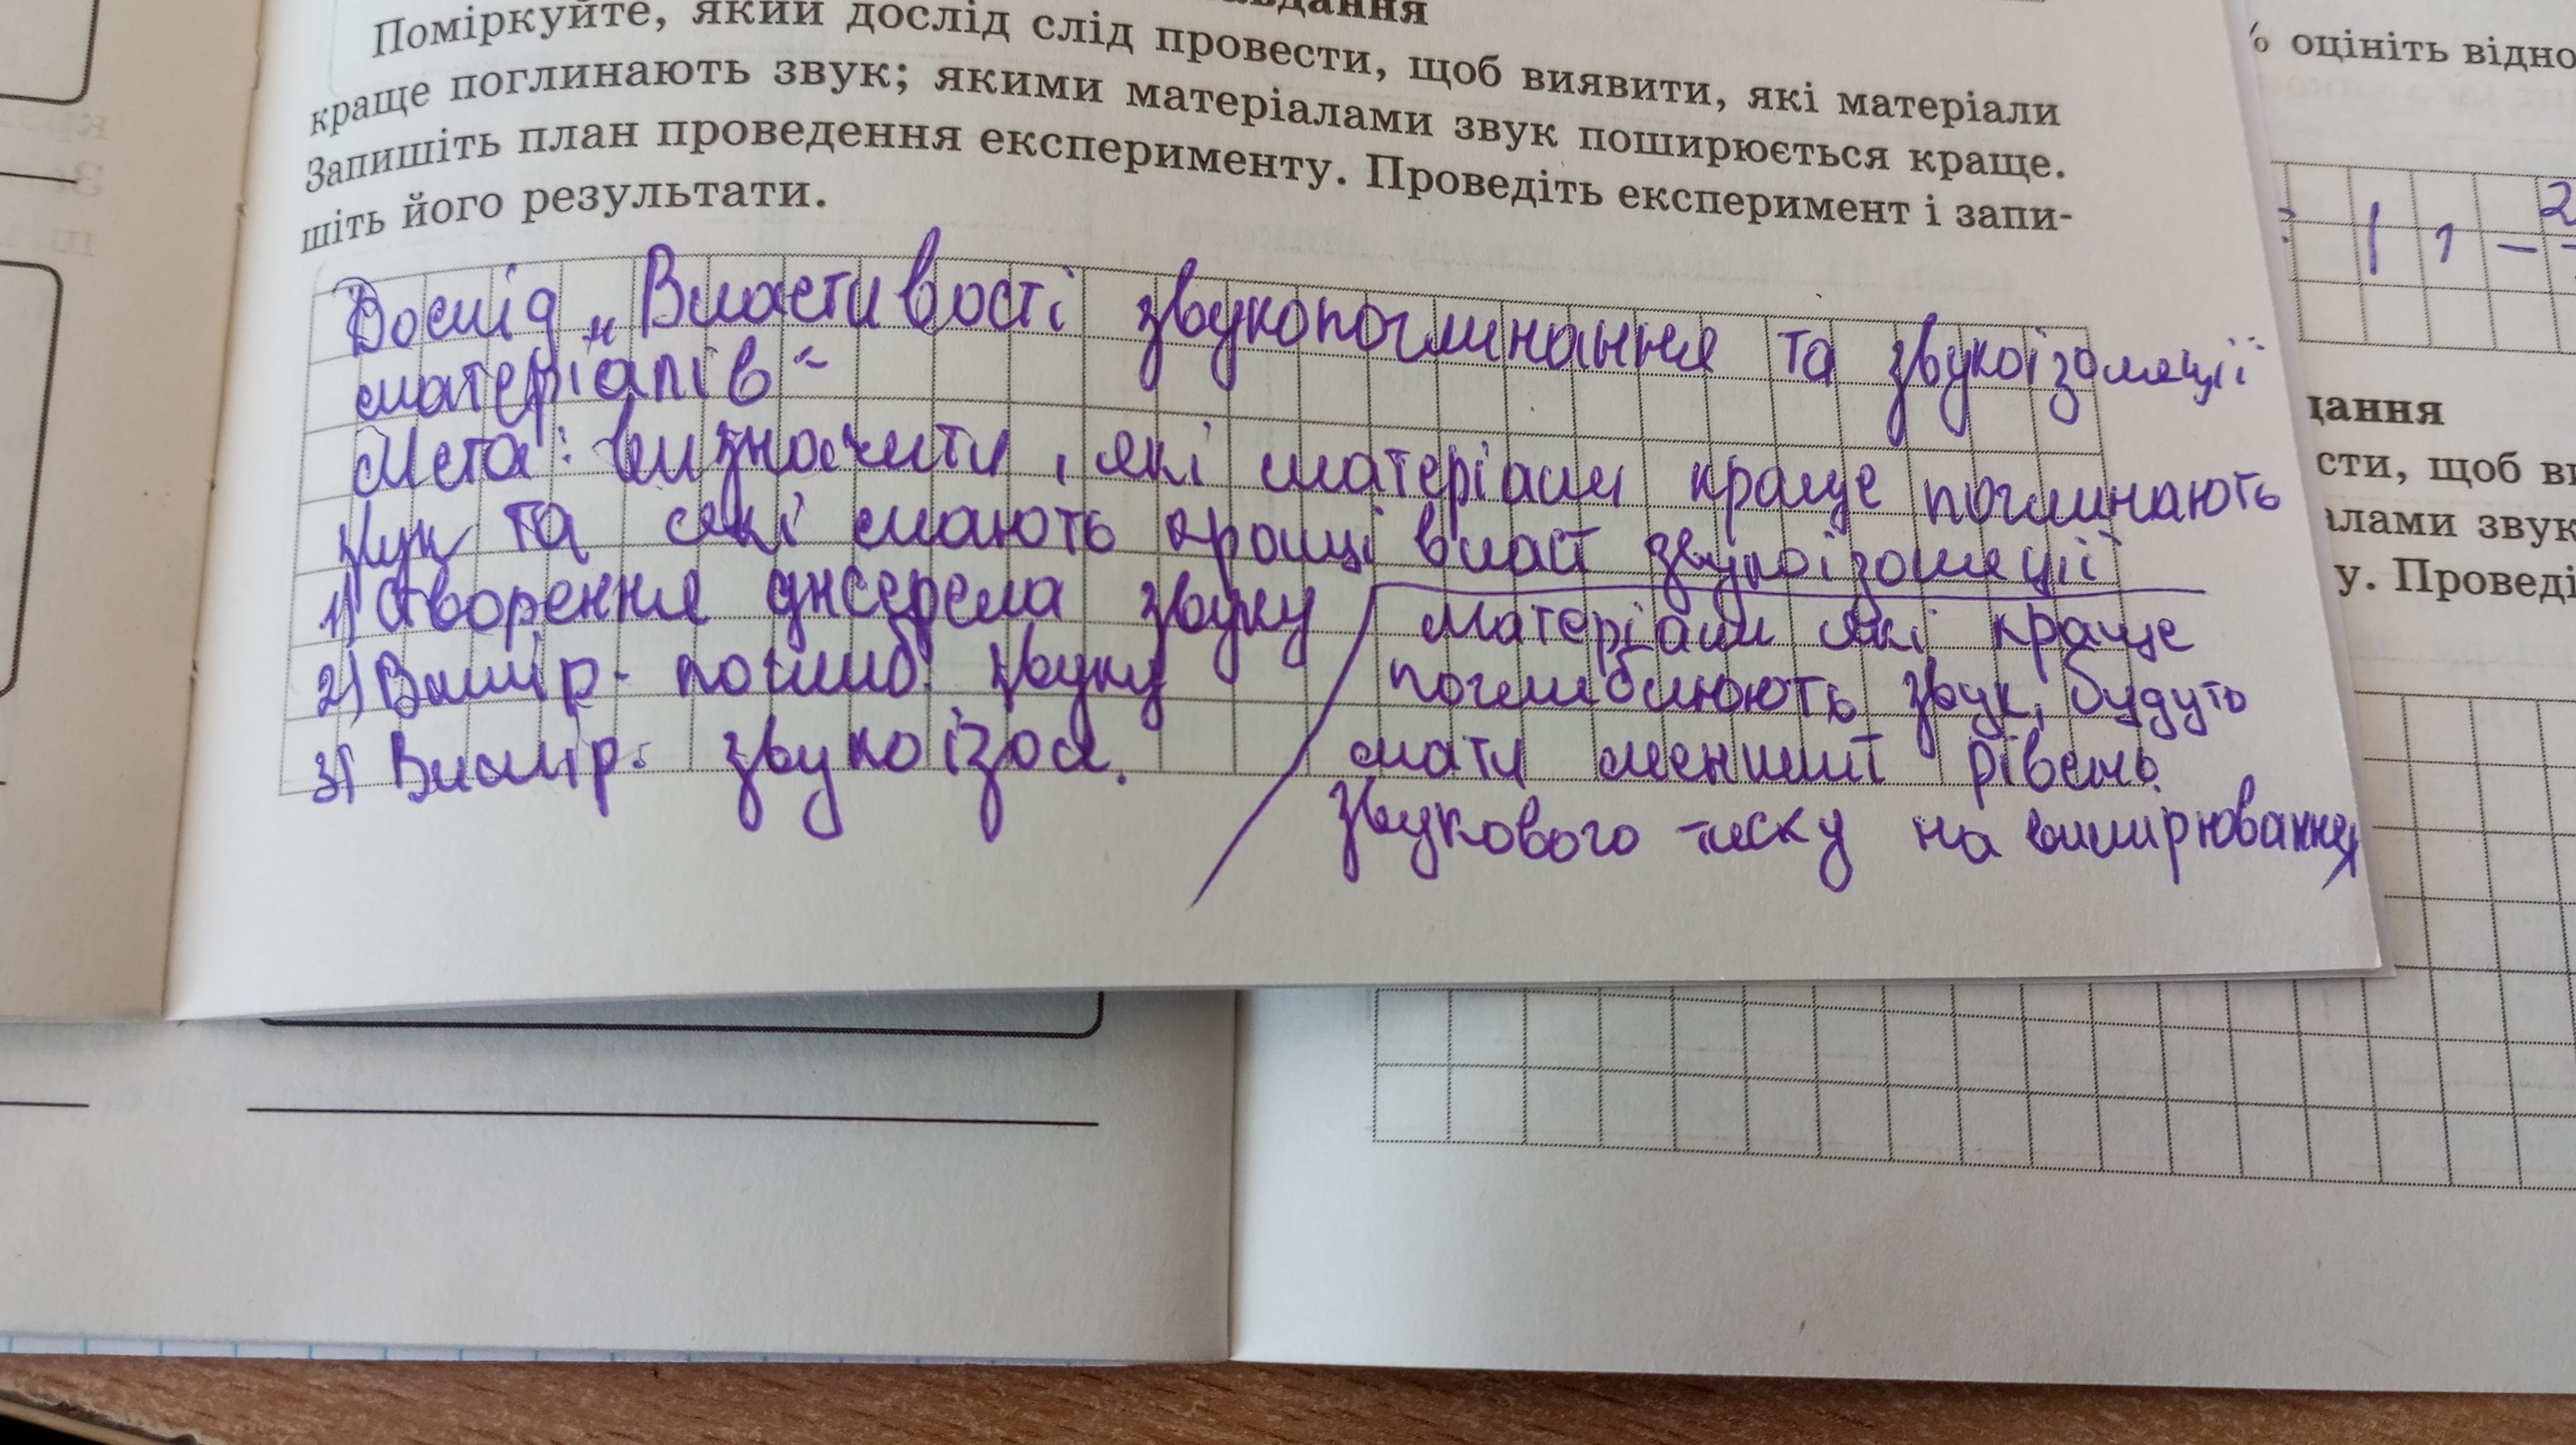 вдання
Поміркуйте, який дослід слід провести, щоб виявити, які матеріали
краще поглинають звук; якими матеріалами звук поширюється краще.
Запишіть план проведення експерименту. Проведіть експеримент і запи-
шіть його результати.
Дослід „Властивості звукопоглинання та звукоізоляції
матеріалів“
Мета: визначити, які матеріали краще поглинають
звук та які мають кращі власт звукоізоляції
1) Створення джерела звуку
2) Вимір. поглиб. звуку
3) Вимір. звукоізол.
Матеріали які краще
поглиблюють звук, будуть
мати менший рівень
звукового тиску на вимірювання
% оцініть відно
: 1 1 – 2
дання
сти, щоб ви
алами звук
у. Проведі